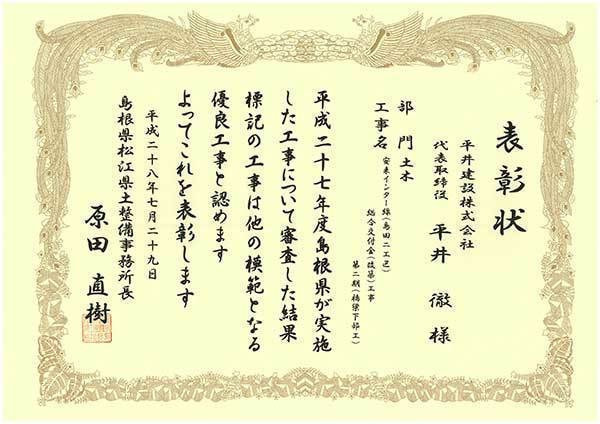 表彰状
平井建設株式会社
代表取締役 平井 徹 様
部門 土木
工事名 安来インター線(島田二工区)
総合交付金(改築)工事
第二期(橋梁下部工)
平成二十七年度島根県が実施
した工事について審査した結果
標記の工事は他の模範となる
優良工事と認めます
よってこれを表彰します
平成二十八年七月二十九日
島根県松江県土整備事務所長
原田 直樹